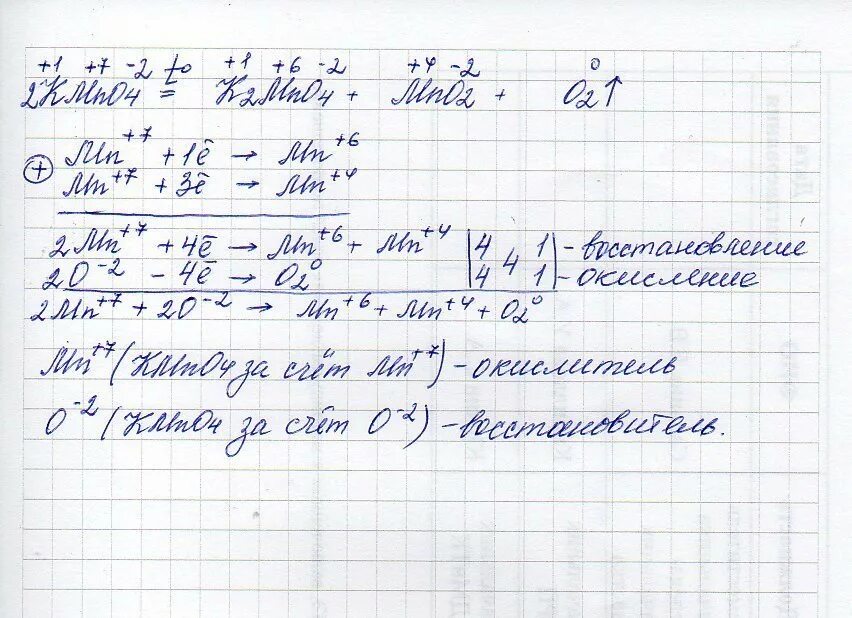 +1 +7 -2 t° +1 +6 -2 +4 -2 0
2KMnO4 = K2MnO4 + MnO2 + O2↑
+ Mn⁺⁷ + 1ē → Mn⁺⁶
Mn⁺⁷ + 3ē → Mn⁺⁴
2Mn⁺⁷ + 4ē → Mn⁺⁶ + Mn⁺⁴ | 4 4 | 1 | - восстановление
2O⁻² - 4ē → O2⁰ | 4 | 1 | - окисление
2Mn⁺⁷ + 2O⁻² → Mn⁺⁶ + Mn⁺⁴ + O2⁰
Mn⁺⁷ (KMnO4 за счёт Mn⁺⁷) - окислитель
O⁻² (KMnO4 за счёт O⁻²) - восстановитель.